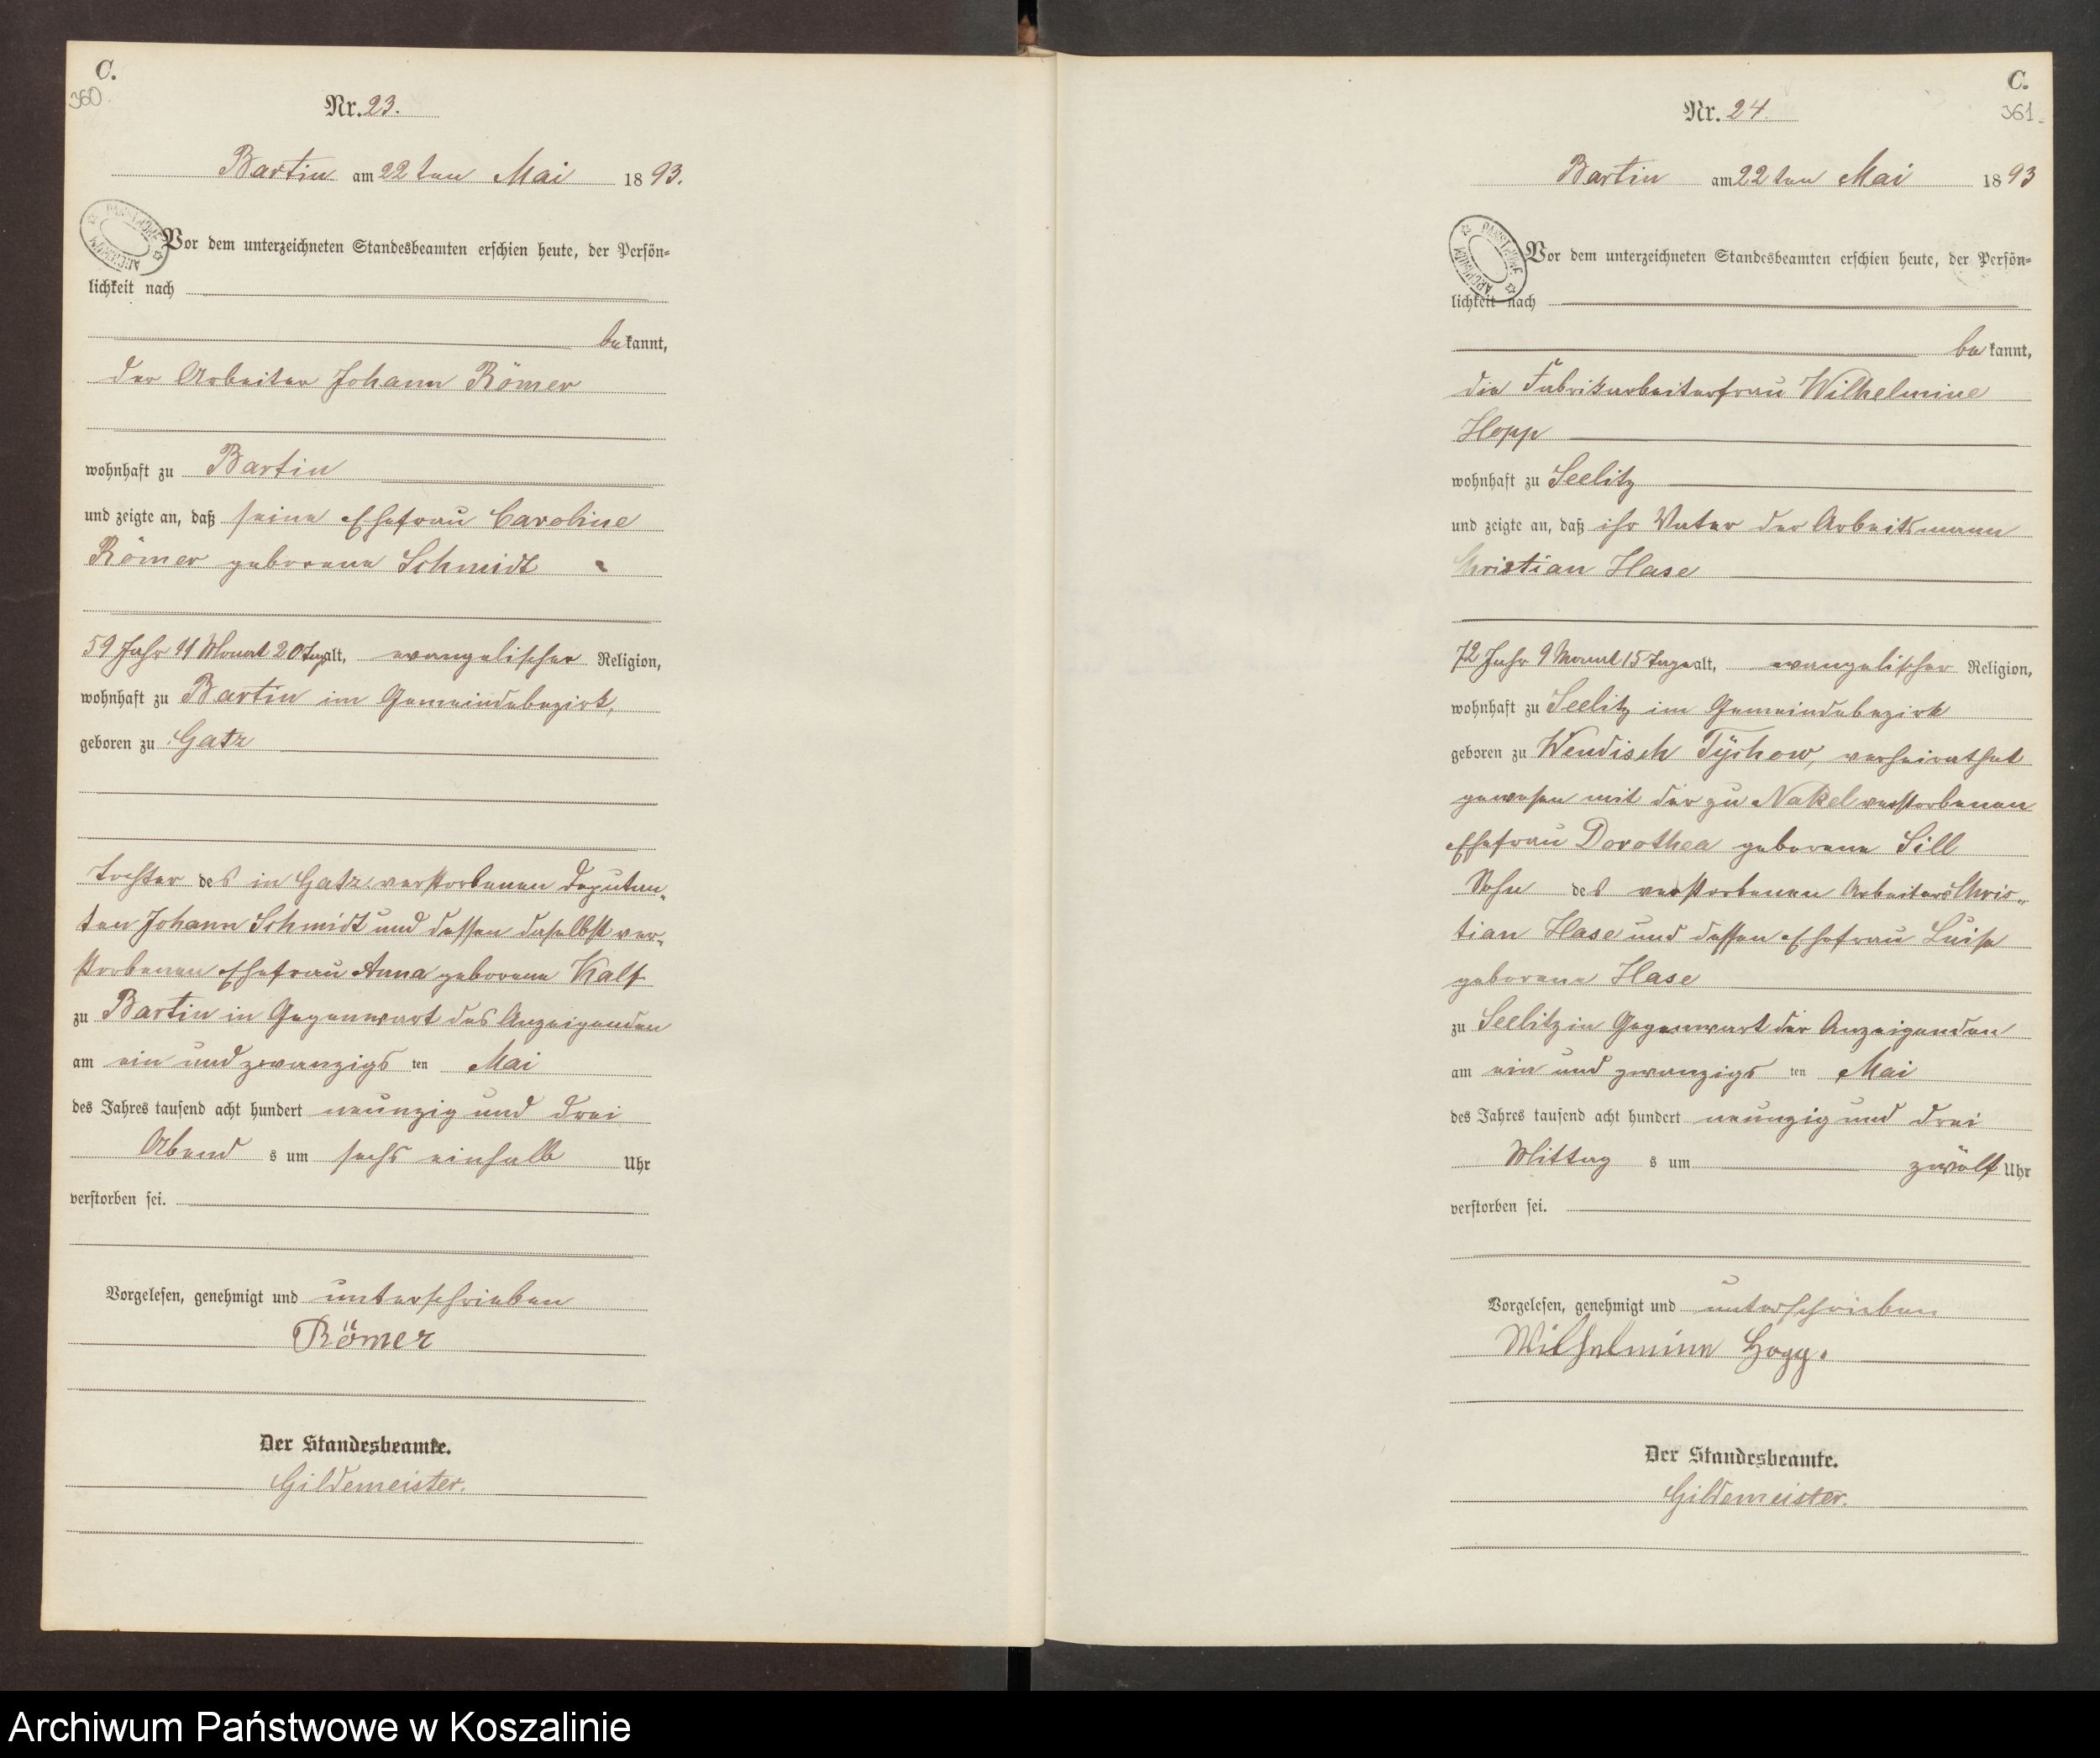 C.
360
Nr. 23.
Bartin am 22ten Mai 1893.
PAŃSTWOWE
ARCHIWUM
Vor dem unterzeichneten Standesbeamten erschien heute, der Persön-
lichkeit nach
bekannt,
der Arbeiter Johann Römer
wohnhaft zu Bartin
und zeigte an, daß seine Ehefrau Caroline
Römer geborene Schmidt
59 Jahr 11 Monat 20 Tage alt, evangelischer Religion,
wohnhaft zu Bartin im Gemeindebezirk,
geboren zu Gatz
Tochter des in Gatz verstorbenen Deputan-
ten Johann Schmidt und dessen daselbst ver-
storbenen Ehefrau Anna geborene Kalf
zu Bartin in Gegenwart des Anzeigenden
am ein und zwanzigsten Mai
des Jahres tausend acht hundert neunzig und drei
Abends um sechs einhalb Uhr
verstorben sei.
Vorgelesen, genehmigt und unterschrieben
Römer
Der Standesbeamte.
Gildemeister.
C.
361
Nr. 24.
Bartin am 22ten Mai 1893
PAŃSTWOWE
ARCHIWUM
Vor dem unterzeichneten Standesbeamten erschien heute, der Persön-
lichkeit nach
bekannt,
die Fabrikarbeiterfrau Wilhelmine
Hopp
wohnhaft zu Seelitz
und zeigte an, daß ihr Vater der Arbeitsmann
Christian Hase
72 Jahr 9 Monat 15 Tage alt, evangelischer Religion,
wohnhaft zu Seelitz im Gemeindebezirk
geboren zu Wendisch Tychow, verheirathet
gewesen mit der zu Nakel verstorbenen
Ehefrau Dorothea geborene Sill
Sohn des verstorbenen Arbeiters Chris-
tian Hase und dessen Ehefrau Luise
geborene Hase
zu Seelitz in Gegenwart der Anzeigenden
am ein und zwanzigsten Mai
des Jahres tausend acht hundert neunzig und drei
Mittags um zwölf Uhr
verstorben sei.
Vorgelesen, genehmigt und unterschrieben
Wilhelmine Hopp.
Der Standesbeamte.
Gildemeister.
Archiwum Państwowe w Koszalinie